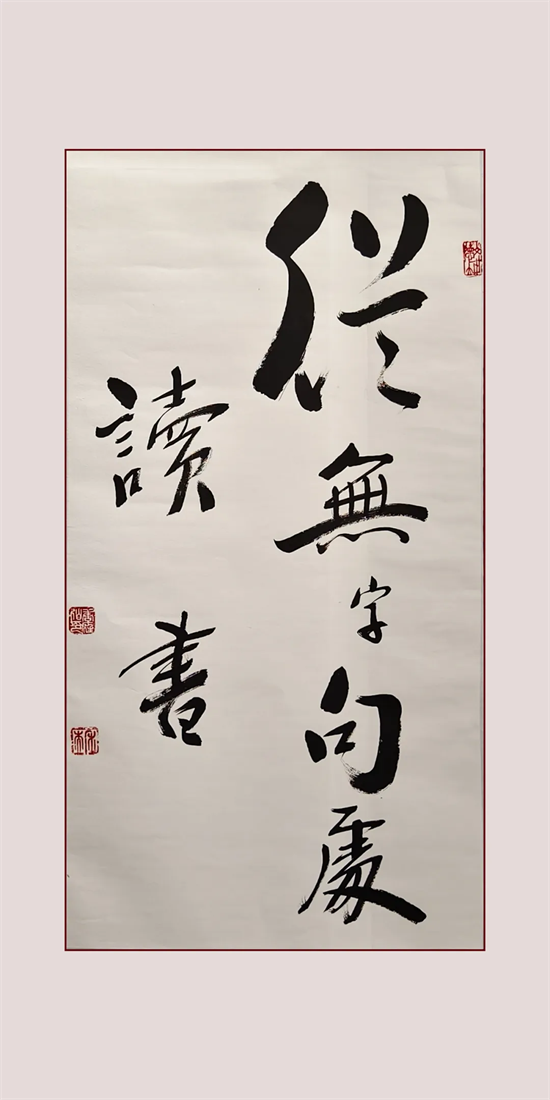 從無字句處
讀書